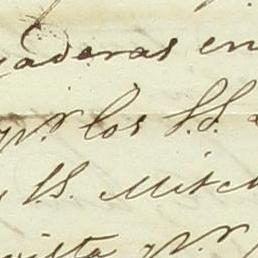 gaderas en
p.r los S.S.
y SS. Misch
vista p.r